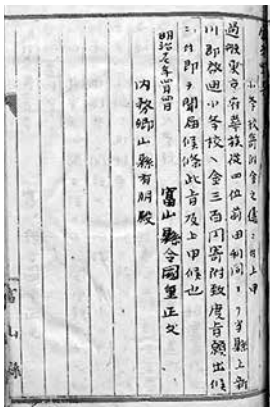 小学校寄附金之儀ニ付上申
過般東京府華族従四位前田利同ヨリ当県上新
川郡教遇小学校ヘ金三百円寄附致度旨願出候
ニ付即チ聞届候條此旨及上申候也
明治 年四月四日
富山縣令國重正文
内務卿山縣有朋殿
富山縣